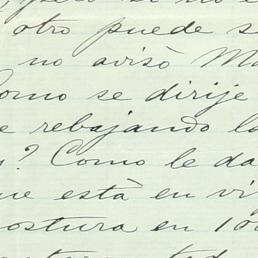 pero si no e
otro puede s
no avisò Ma
omo se dirije
e rebajando lo
? Como le da
ue està en vi
ostura en 100